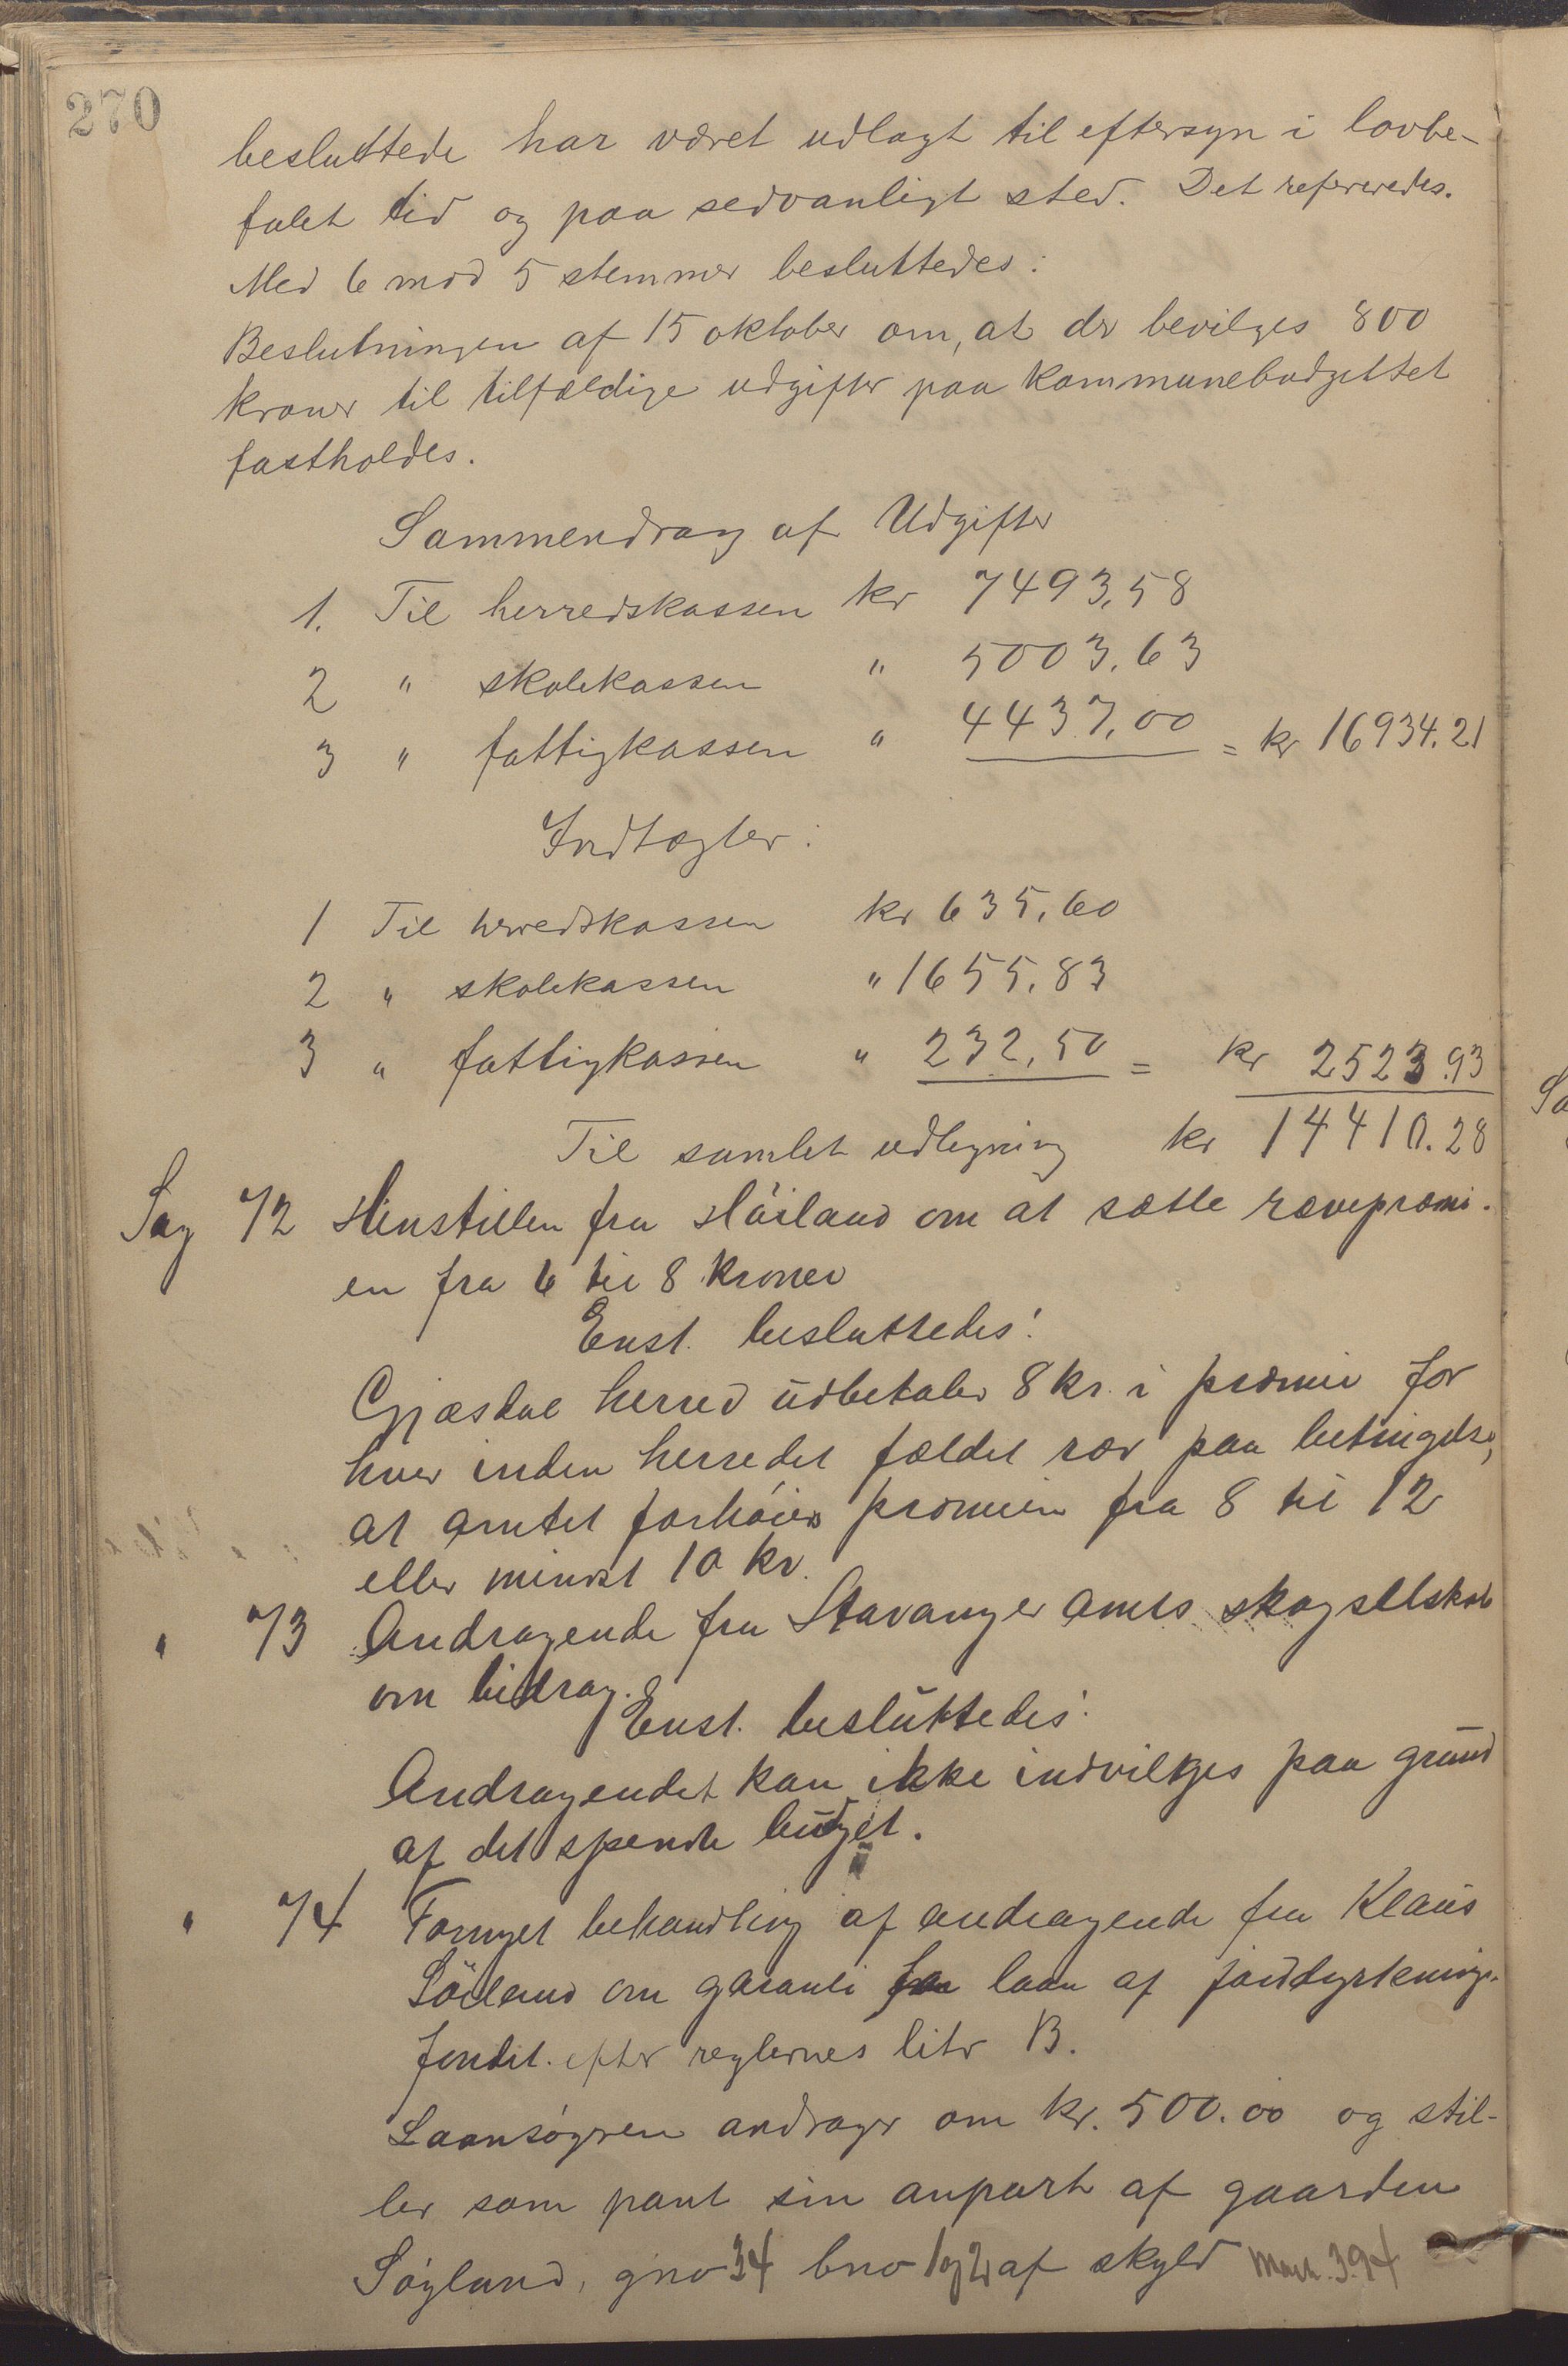 270
besluttede har været udlagt til eftersyn i lovbe-
falet tid og paa sedvanligt sted. Det refereredes.
Med 6 mod 5 stemmer besluttedes:
Beslutningen af 15 oktober om, at der bevilges 800
kroner til tilfældige udgifter paa kommunebudgettet
fastholdes.
Sammendrag af Udgifter
1. Til herredskassen kr 7493,58
2 " skolekassen " 5003,63
3 " fattigkassen " 4437,00 = kr 16934.21
Indtægter:
1 Til herredskassen kr 635,60
2 " skolekassen " 1655,83
3 " fattigkassen " 232,50 = kr 2523.93
Til samlet udligning kr 14410.28
Sag 72 Henstillen fra Höiland om at sætte rævepræmi-
en fra 6 til 8 kroner
Enst. besluttedes:
Gjæsdal herred udbetaler 8 kr. i præmie for
hver inden herredet fældet ræv paa betingelse,
at amtet forhöier præmien fra 8 til 12
eller mindst 10 kr.
" 73 Andragende fra Stavanger amts skogselskab
om bidrag.
Enst. besluttedes:
Andragendet kan ikke indvilges paa grund
af det spendte budget.
" 74 Fornyet behandling af andragende fra Klaus
Söiland om garanti for laan af jorddyrknings-
fondet efter reglernes litr B.
Laansøgeren andrager om kr. 500.00 og stil-
ler som pant sin anpart af gaarden
Søyland, gno 34 bno 1 og 2 af skyld Mark 3.94